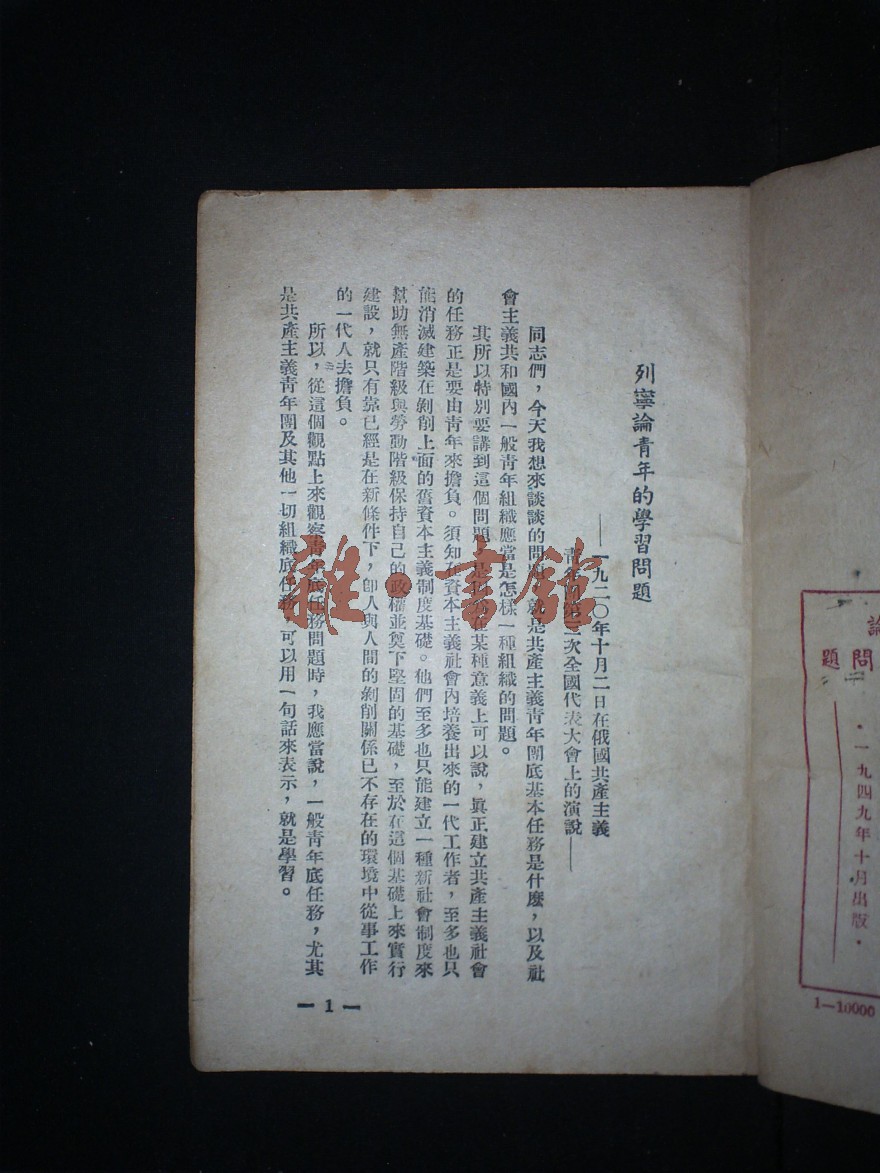 論
問題
•一九四九年十月出版•
1—10000
列寧論青年的學習問題
——一九二〇年十月二日在俄國共產主義
青年團第三次全國代表大會上的演說——
同志們，今天我想來談談的問題，就是共產主義青年團底基本任務是什麼，以及社
會主義共和國內一般青年組織應當是怎樣一種組織的問題。
其所以特別要講到這個問題，是因為在某種意義上可以說，眞正建立共產主義社會
的任務正是要由青年來擔負。須知在資本主義社會內培養出來的一代工作者，至多也只
能消滅建築在剝削上面的舊資本主義制度基礎。他們至多也只能建立一種新社會制度來
幫助無產階級與勞動階級保持自己的政權並奠下堅固的基礎，至於在這個基礎上來實行
建設，就只有靠已經是在新條件下，卽人與人間的剝削關係已不存在的環境中從事工作
的一代人去擔負。
所以，從這個觀點上來觀察青年底任務問題時，我應當說，一般青年底任務，尤其
是共產主義青年團及其他一切組織底任務，可以用一句話來表示，就是學習。
— 1 —
雜·書館